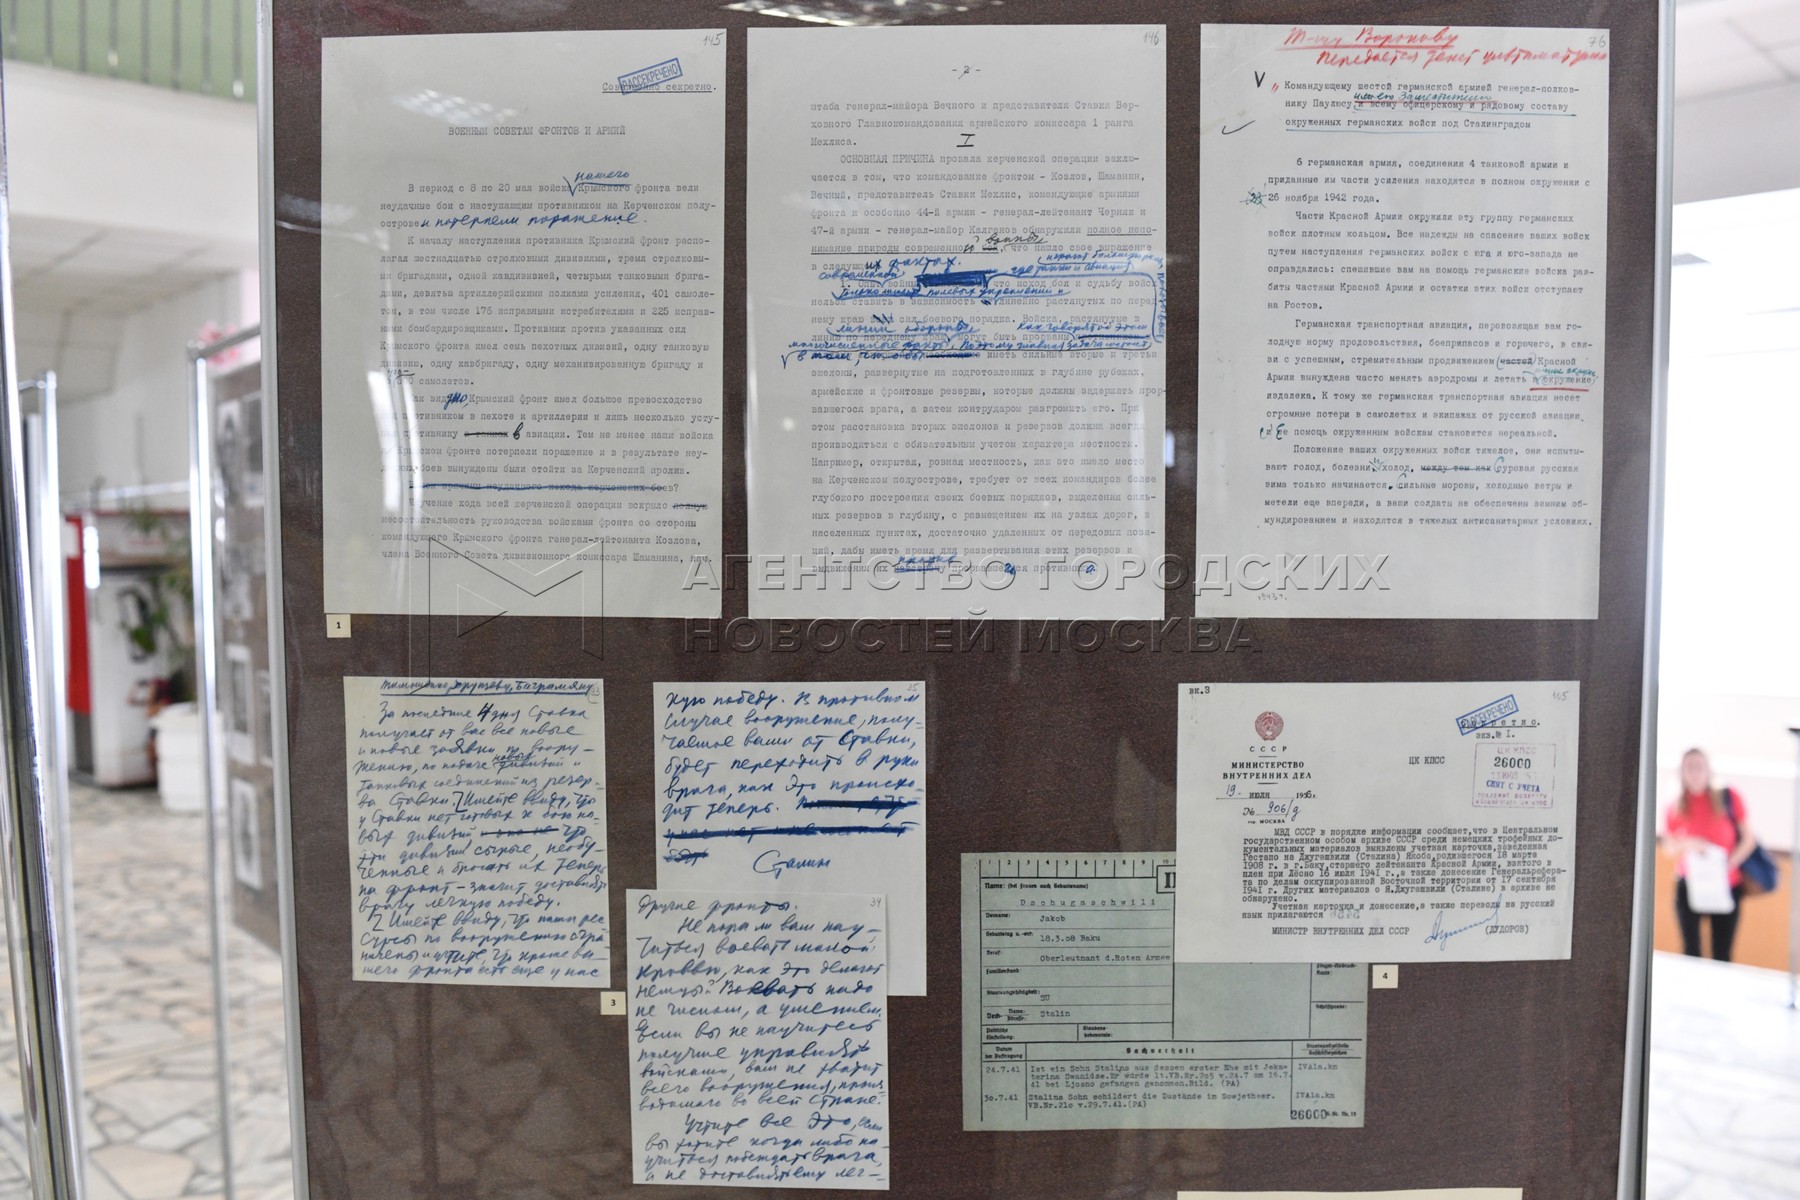 145
РАССЕКРЕЧЕНО
Совершенно секретно.
ВОЕННЫМ СОВЕТАМ ФРОНТОВ И АРМИЙ
нашего
В период с 8 по 20 мая войска Крымского фронта вели
неудачные бои с наступающим противником на Керченском полу-
острове и потерпели поражение.
К началу наступления противника Крымский фронт распо-
лагал шестнадцатью стрелковыми дивизиями, тремя стрелковы-
ми бригадами, одной кавдивизией, четырьмя танковыми брига-
дами, девятью артиллерийскими полками усиления, 401 самоле-
том, в том числе 176 исправными истребителями и 225 исправ-
ными бомбардировщиками. Противник против указанных сил
Крымского фронта имел семь пехотных дивизий, одну танковую
дивизию, одну кавбригаду, одну механизированную бригаду и
самолетов.
Как видно, Крымский фронт имел большое превосходство
над противником в пехоте и артиллерии и лишь несколько усту-
пал противнику в танках в авиации. Тем не менее наши войска
на Крымском фронте потерпели поражение и в результате неу-
дачных боев вынуждены были отойти за Керченский пролив.
причины неудачного исхода керченских боев?
Изучение хода всей керченской операции вскрыло полную
несостоятельность руководства войсками фронта со стороны
командующего Крымского фронта генерал-лейтенанта Козлова,
члена Военного Совета дивизионного комиссара Шаманина, нач.
1
146
- 2 -
штаба генерал-майора Вечного и представителя Ставки Вер-
ховного Главнокомандования армейского комиссара 1 ранга
Мехлиса.
I
ОСНОВНАЯ ПРИЧИНА провала керченской операции заклю-
чается в том, что командование фронтом - Козлов, Шаманин,
Вечный, представитель Ставки Мехлис, командующие армиями
фронта и особенно 44-й армии - генерал-лейтенант Черняк и
47-й армии - генерал-майор Калганов обнаружили полное непо-
нимание природы современной войны, что нашло свое выражение
в следующих фактах.
что исход боя и судьбу войск
нельзя ставить в зависимость линейно растянутых по перед-
нему краю сил боевого порядка. Войска, растянутые в
линию по переднему краю, могут быть прорваны
линии обороны как говорят об этом
многочисленные факты. Поэтому главная задача состоит
в том чтобы иметь сильные вторые и третьи
эшелоны, развернутые на подготовленных в глубине рубежах,
армейские и фронтовые резервы, которые должны задержать прор-
вавшегося врага, а затем контрударом разгромить его. При
этом расстановка вторых эшелонов и резервов должна всегда
производиться с обязательным учетом характера местности.
Например, открытая, ровная местность, как это имело место
на Керченском полуострове, требует от всех командиров более
глубокого построения своих боевых порядков, выделения силь-
ных резервов в глубину, с размещением их на узлах дорог, в
населенных пунктах, достаточно удаленных от передовых пози-
ций, дабы иметь время для развертывания этих резервов и
выдвижения их против прорвавшегося противника.
76
Т-щу Воронову
Передается текст ультиматума
V
Командующему шестой германской армией генерал-полков-
нику Паулюсу или его Заместителю и всему офицерскому и рядовому составу
окруженных германских войск под Сталинградом
6 германская армия, соединения 4 танковой армии и
приданные им части усиления находятся в полном окружении с
23 26 ноября 1942 года.
Части Красной Армии окружили эту группу германских
войск плотным кольцом. Все надежды на спасение ваших войск
путем наступления германских войск с юга и юго-запада не
оправдались: спешившие вам на помощь германские войска раз-
биты частями Красной Армии и остатки этих войск отступают
на Ростов.
Германская транспортная авиация, перевозящая вам го-
лодную норму продовольствия, боеприпасов и горючего, в свя-
зи с успешным, стремительным продвижением частей Красной
Армии вынуждена часто менять аэродромы и летать в окружение
издалека. К тому же германская транспортная авиация несет
огромные потери в самолетах и экипажах от русской авиации.
Её помощь окруженным войскам становится нереальной.
Положение ваших окруженных войск тяжелое, они испыты-
вают голод, болезни, холод, между тем как суровая русская
зима только начинается. Сильные морозы, холодные ветры и
метели еще впереди, а ваши солдаты не обеспечены зимним об-
мундированием и находятся в тяжелых антисанитарных условиях.
1943 г.
АГЕНТСТВО ГОРОДСКИХ
НОВОСТЕЙ МОСКВА
Тимошенко, Хрущеву, Баграмяну
33
За последние 4 дня Ставка
получает от вас все новые
и новые заявки по воору-
жению, по подаче новых дивизий и
танковых соединений из резер-
ва Ставки. Имейте ввиду, что
у Ставки нет готовых к бою но-
вых дивизий что
эти дивизии сырые, необу-
ченные и бросать их теперь
на фронт – значит доставлять
врагу легкую победу.
Имейте ввиду, что наши рес-
сурсы по вооружению огра-
ничены и учтите, что кроме ва-
шего фронта есть еще у нас
3
34
другие фронты.
Не пора ли вам нау-
читься воевать малой
кровью, как это делают
немцы? Воевать надо
не числом, а умением.
Если вы не научитесь
получше управлять
войсками, вам не хватит
всего вооружения, произ-
водимого во всей стране.
Учтите все это, если
вы хотите когда либо на-
учиться побеждать врага,
а не доставлять ему лег-
35
кую победу. В противном
случае вооружение, полу-
чаемое вами от Ставки,
будет переходить в руки
врага, как это происхо-
дит теперь.
Сталин
вк.3
155
РАССЕКРЕЧЕНО
Секретно.
экз.№ I.
СССР
МИНИСТЕРСТВО
ВНУТРЕННИХ ДЕЛ
19 июля 1956г.
№ 906/д
гор. МОСКВА
ЦК КПСС
ЦК КПСС
26000
СНЯТ С УЧЕТА
МВД СССР в порядке информации сообщает,что в Центральном
государственном особом архиве СССР среди немецких трофейных до-
кументальных материалов выявлена учетная карточка,заведенная
Гестапо на Джугашвили (Сталина) Якова,родившегося 18 марта
1908 г. в г.Баку,старшего лейтенанта Красной Армии, взятого в
плен при Лёсно 16 июля 1941 г.,а также донесение Генеральрефера-
та по делам оккупированной Восточной территории от 17 сентября
1941 г. Других материалов о Я.Джугашвили (Сталине) в архиве не
обнаружено.
Учетная карточка и донесение,а также перевод на русский
язык прилагаются
МИНИСТР ВНУТРЕННИХ ДЕЛ СССР (ДУДОРОВ)
4
1 2 3 4 5 6 7 8 9 10
Name: (bei Frauen auch Geburtsname)
Dschugaschwili
Vorname:
Jakob
Geburtstag u. -ort:
18.3.08 Baku
Beruf:
Oberleutnant d.Roten Armee
Familienstand:
Staatsangehörigkeit:
SU
Deck- Name:
Stalin
Politische Einstellung:
Glaubensbekenntnis:
Datum der Auftragung
Sachverhalt
24.7.41 Ist ein Sohn Stalins aus dessen erster Ehe mit Jeka-
terina Swanidse. Er wurde lt.VB.Nr.205 v.24.7 am 16.7.
41 bei Ljosno gefangen genommen.Bild. (PA) IVA1a.kn
30.7.41 Stalins Sohn schildert die Zustände im Sowjetheer.
VB.Nr.210 v.29.7.41.(PA) IVA1a.kn
26000